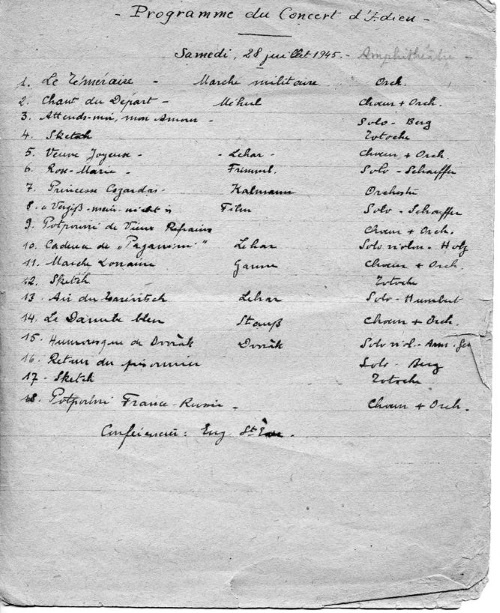 - Programme du Concert d'Adieu -
Samedi, 28 juillet 1945. - Amphithéâtre -
1. Le Téméraire - Marche militaire Orch.
2. Chant du Départ - Méhul Chœur + Orch.
3. Attends-moi, mon Amour - Solo - Berg
4. Sketch Totoche
5. Veuve Joyeuse - - Lehar - Chœur + Orch.
6. Rose-Marie - Frimml. Solo - Schaeffer
7. Princesse Czardas - Kalmann Orchestre
8. "Vergiß-mein-nicht" Film Solo - Schaeffer
9. Potpourri de Vieux Refrains Chœur + Orch.
10. Cadenza de "Paganini" Lehar Solo violon - Holz
11. Marche Lorraine Ganne Chœur + Orch.
12. Sketch Totoche
13. Air du Lehar Solo - Humbert
14. Le Danube bleu Strauß Chœur + Orch.
15. Humoresque de Dvořák Dvořák Solo
16. Retour du prisonnier Solo - Berg
17. Sketch Totoche
18. Potpourri France - Chœur + Orch.
Conférencier: Eug.